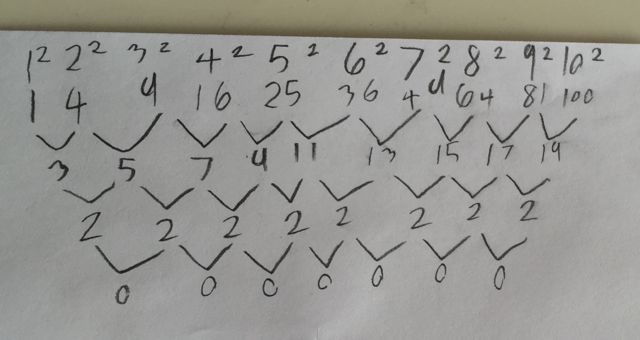 1² 2² 3² 4² 5² 6² 7² 8² 9² 10²
1 4 9 16 25 36 49 64 81 100
3 5 7 9 11 13 15 17 19
2 2 2 2 2 2 2 2
0 0 0 0 0 0 0